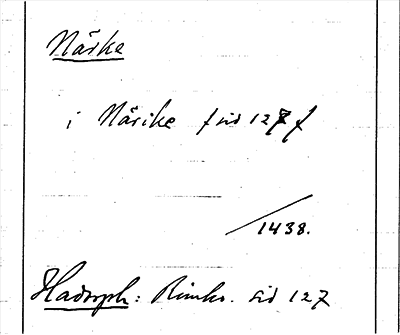 Närke
i Närike f sid 127 f
/1438.
Hadorph: Rimkr. sid 127